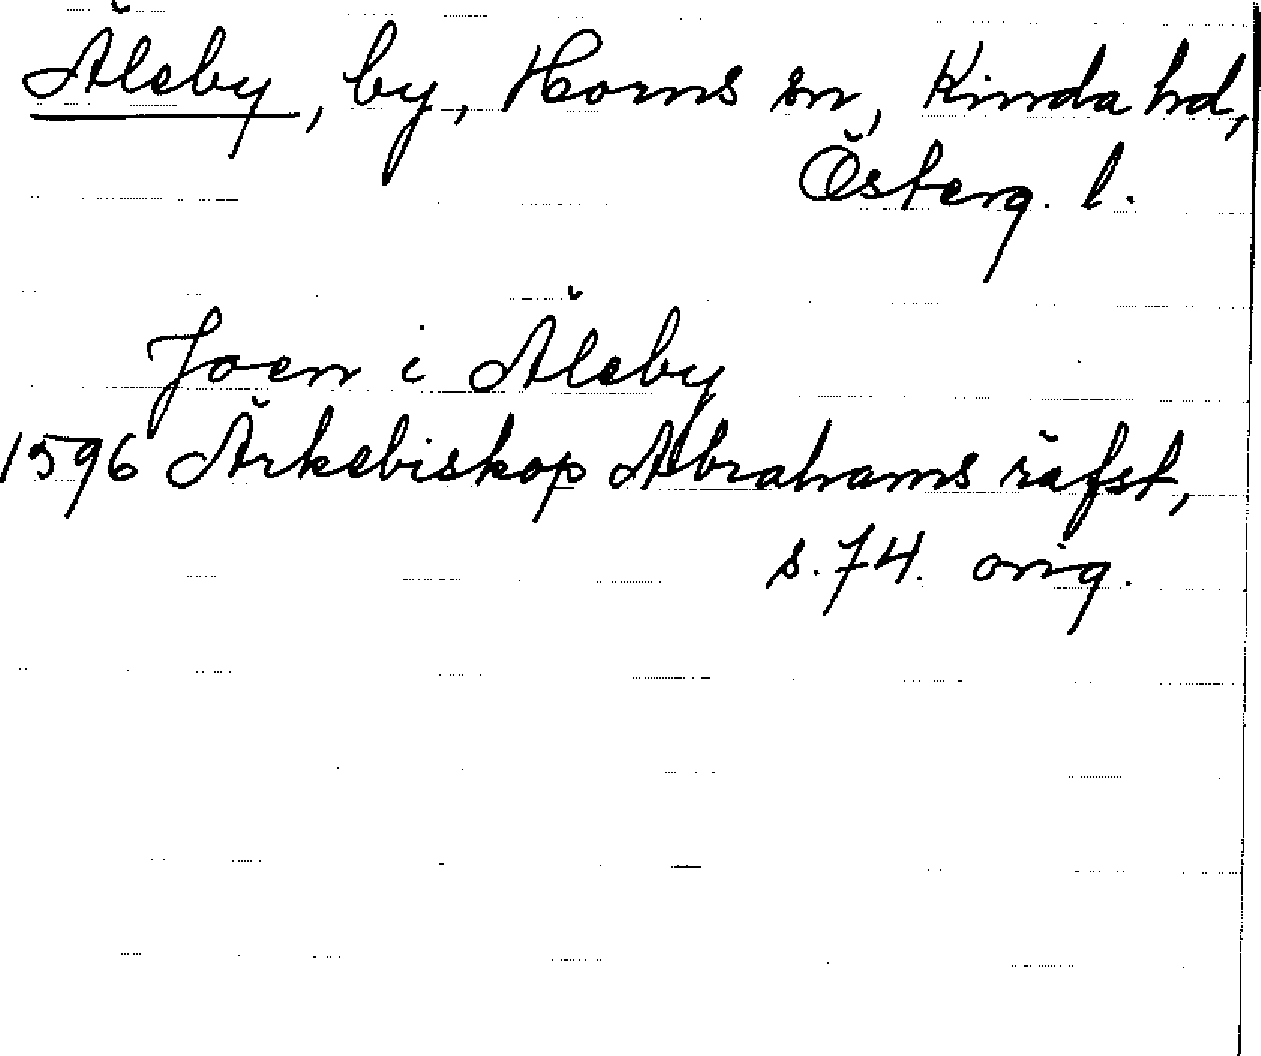 Äleby, by, Horns sn, Kinda hd,
Österg. l.
Joen i Äleby
1596 Ärkebiskop Abrahams räfst,
s. 74. orig.